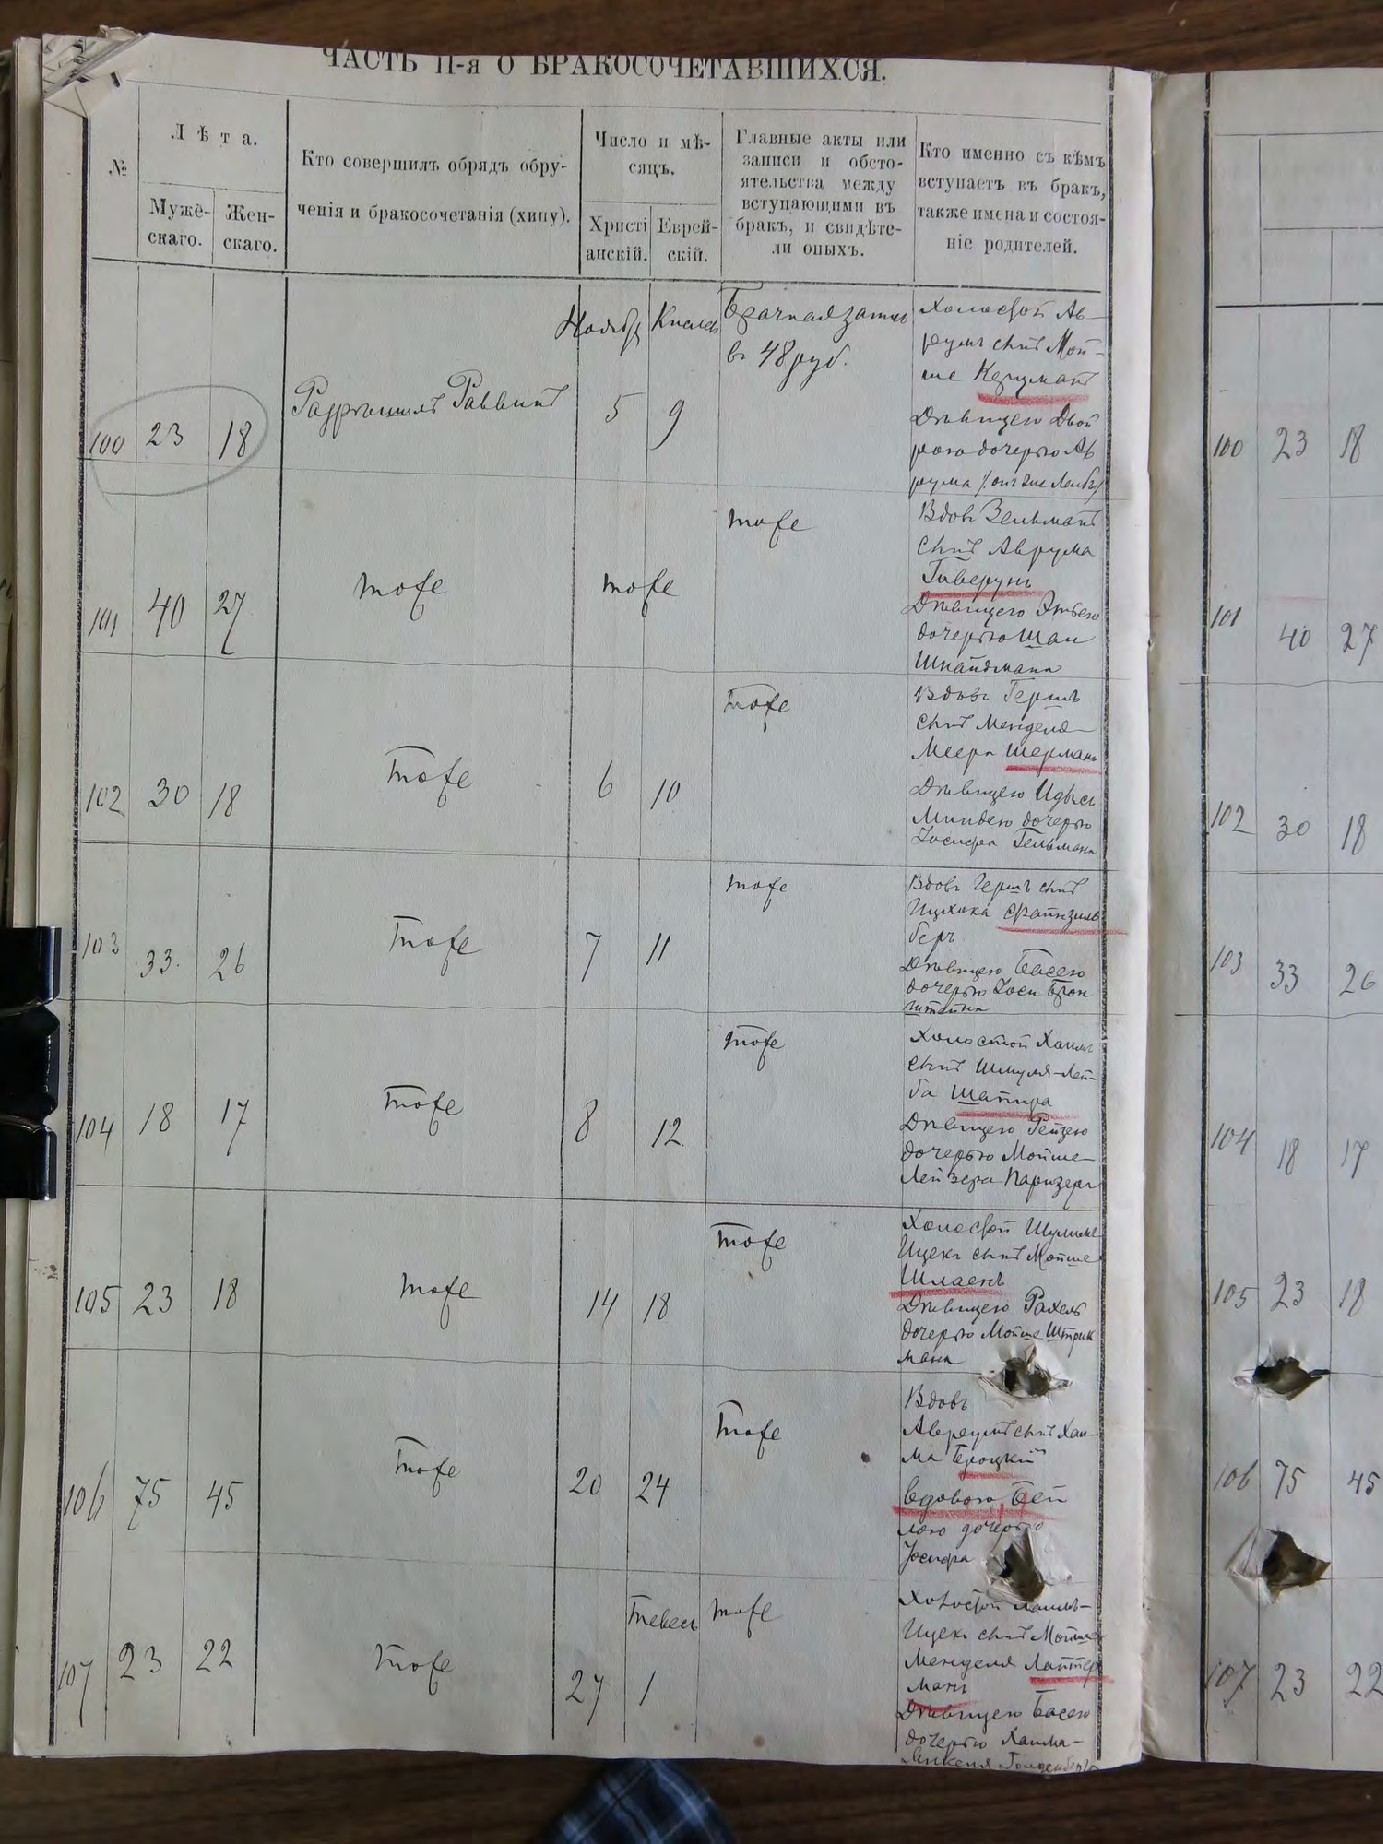 ЧАСТЬ II-я О БРАКОСОЧЕТАВШИХСЯ.
№
Лѣта.
Мужескаго.
Женскаго.
Кто совершилъ обрядъ обрученія и бракосочетанія (хипу).
Число и мѣсяцъ.
Христіанскій.
Еврейскій.
Главные акты или
записи и обстоятельства между
вступающими въ
бракъ, и свидѣтели оныхъ.
Кто именно съ кѣмъ
вступаетъ въ бракъ,
также имена и состояніе родителей.
100 23 18
Разрѣшилъ Раввинъ
Ноябр 5
Кислев 9
Брачная запись
въ 48 руб.
Холостой Ав-
румъ сынъ Мой-
ше
Дѣвицею Двой
рою дочерью Ав
рума
101 40 27 тоже тоже тоже
Вдовъ Зельманъ
сынъ Аврума
Дѣвицею
дочерью
Шнайдмана
102 30 18 тоже 6 10 тоже
Вдовъ Гершъ
сынъ Менделя
Меера Шерманъ
Дѣвицею
Миндею дочерью
Іосифа Гельмана
103 33 26 тоже 7 11 тоже
Вдовъ Гершъ сынъ
Ицхика
бергъ
Дѣвицею Басею
дочерью Іоси Брон
штейна
104 18 17 тоже 8 12 тоже
Холостой Хаимъ
сынъ Шмуля-Лей-
ба Шапира
Дѣвицею Рейзею
дочерью Мойше-
Лейзера Паризера
105 23 18 тоже 14 18 тоже
Холостой Шулимъ
Ицекъ сынъ Мойше
Дѣвицею Рахель
дочерью Мойше Штрик
мана
106 75 45 тоже 20 24 тоже
Вдовъ
Аврумъ сынъ Хаи
ма Троцкій
Вдовою Бей
лою дочерью
Іосифа
107 23 22 тоже 27 Тевесъ 1 тоже
Холостой Хаимъ-
Ицекъ сынъ Мойше
Менделя Лайтер
манъ
Дѣвицею Басею
дочерью Хаима-
100 23 18
101 40 27
102 30 18
103 33 26
104 18 17
105 23 18
106 75 45
107 23 22